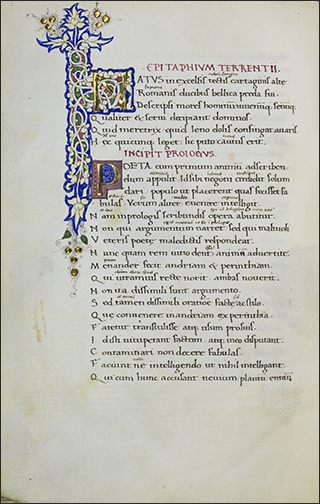 EPITAPHIVM TERRENTII.
NATVS in excelsis tectis cartaginis alte
Romanis ducibus bellica preda fui.
Descripsi mores hominū iuuenūq; senūq;
Qualiter et serui decipiant dominos
Quid meretrix quid leno dolis confingat auarus
Hec quicunq; leget sic puto cautus erit.
INCIPIT PROLOGVS
POETA cum primum animū adscriben
dum appulit. Id sibi negotii credidit solum
dari. populo ut placerent quas fecisset fa
bulas. Verum aliter euenire intelligit
Nam inprologis scribundis opera abutitur.
Non qui argumentum narret sed qui maliuoli
Veteris poete maledictis respondeat.
Nunc quam rem uitio dent animū aduertite.
Menander fecit andriam et perinthiam.
Qui utramuis recte norit ambas nouerit.
Non ita dissimili sunt argumento.
Sed tamen dissimili oratione facte ac stilo
Que conuenere in andriam ex perinthia.
Fatetur transtulisse atq; usum prosuis.
Isti uituperant factum atq; ineo disputant.
Contaminari non decere fabulas
Faciunt ne intelligendo ut nihil intelligant.
Qui cum hunc accusant neuium plautū enniū